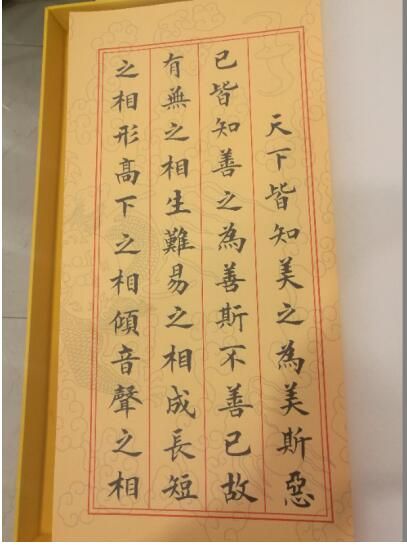 天下皆知美之為美斯惡
已皆知善之為善斯不善已故
有無之相生難易之相成長短
之相形高下之相傾音聲之相